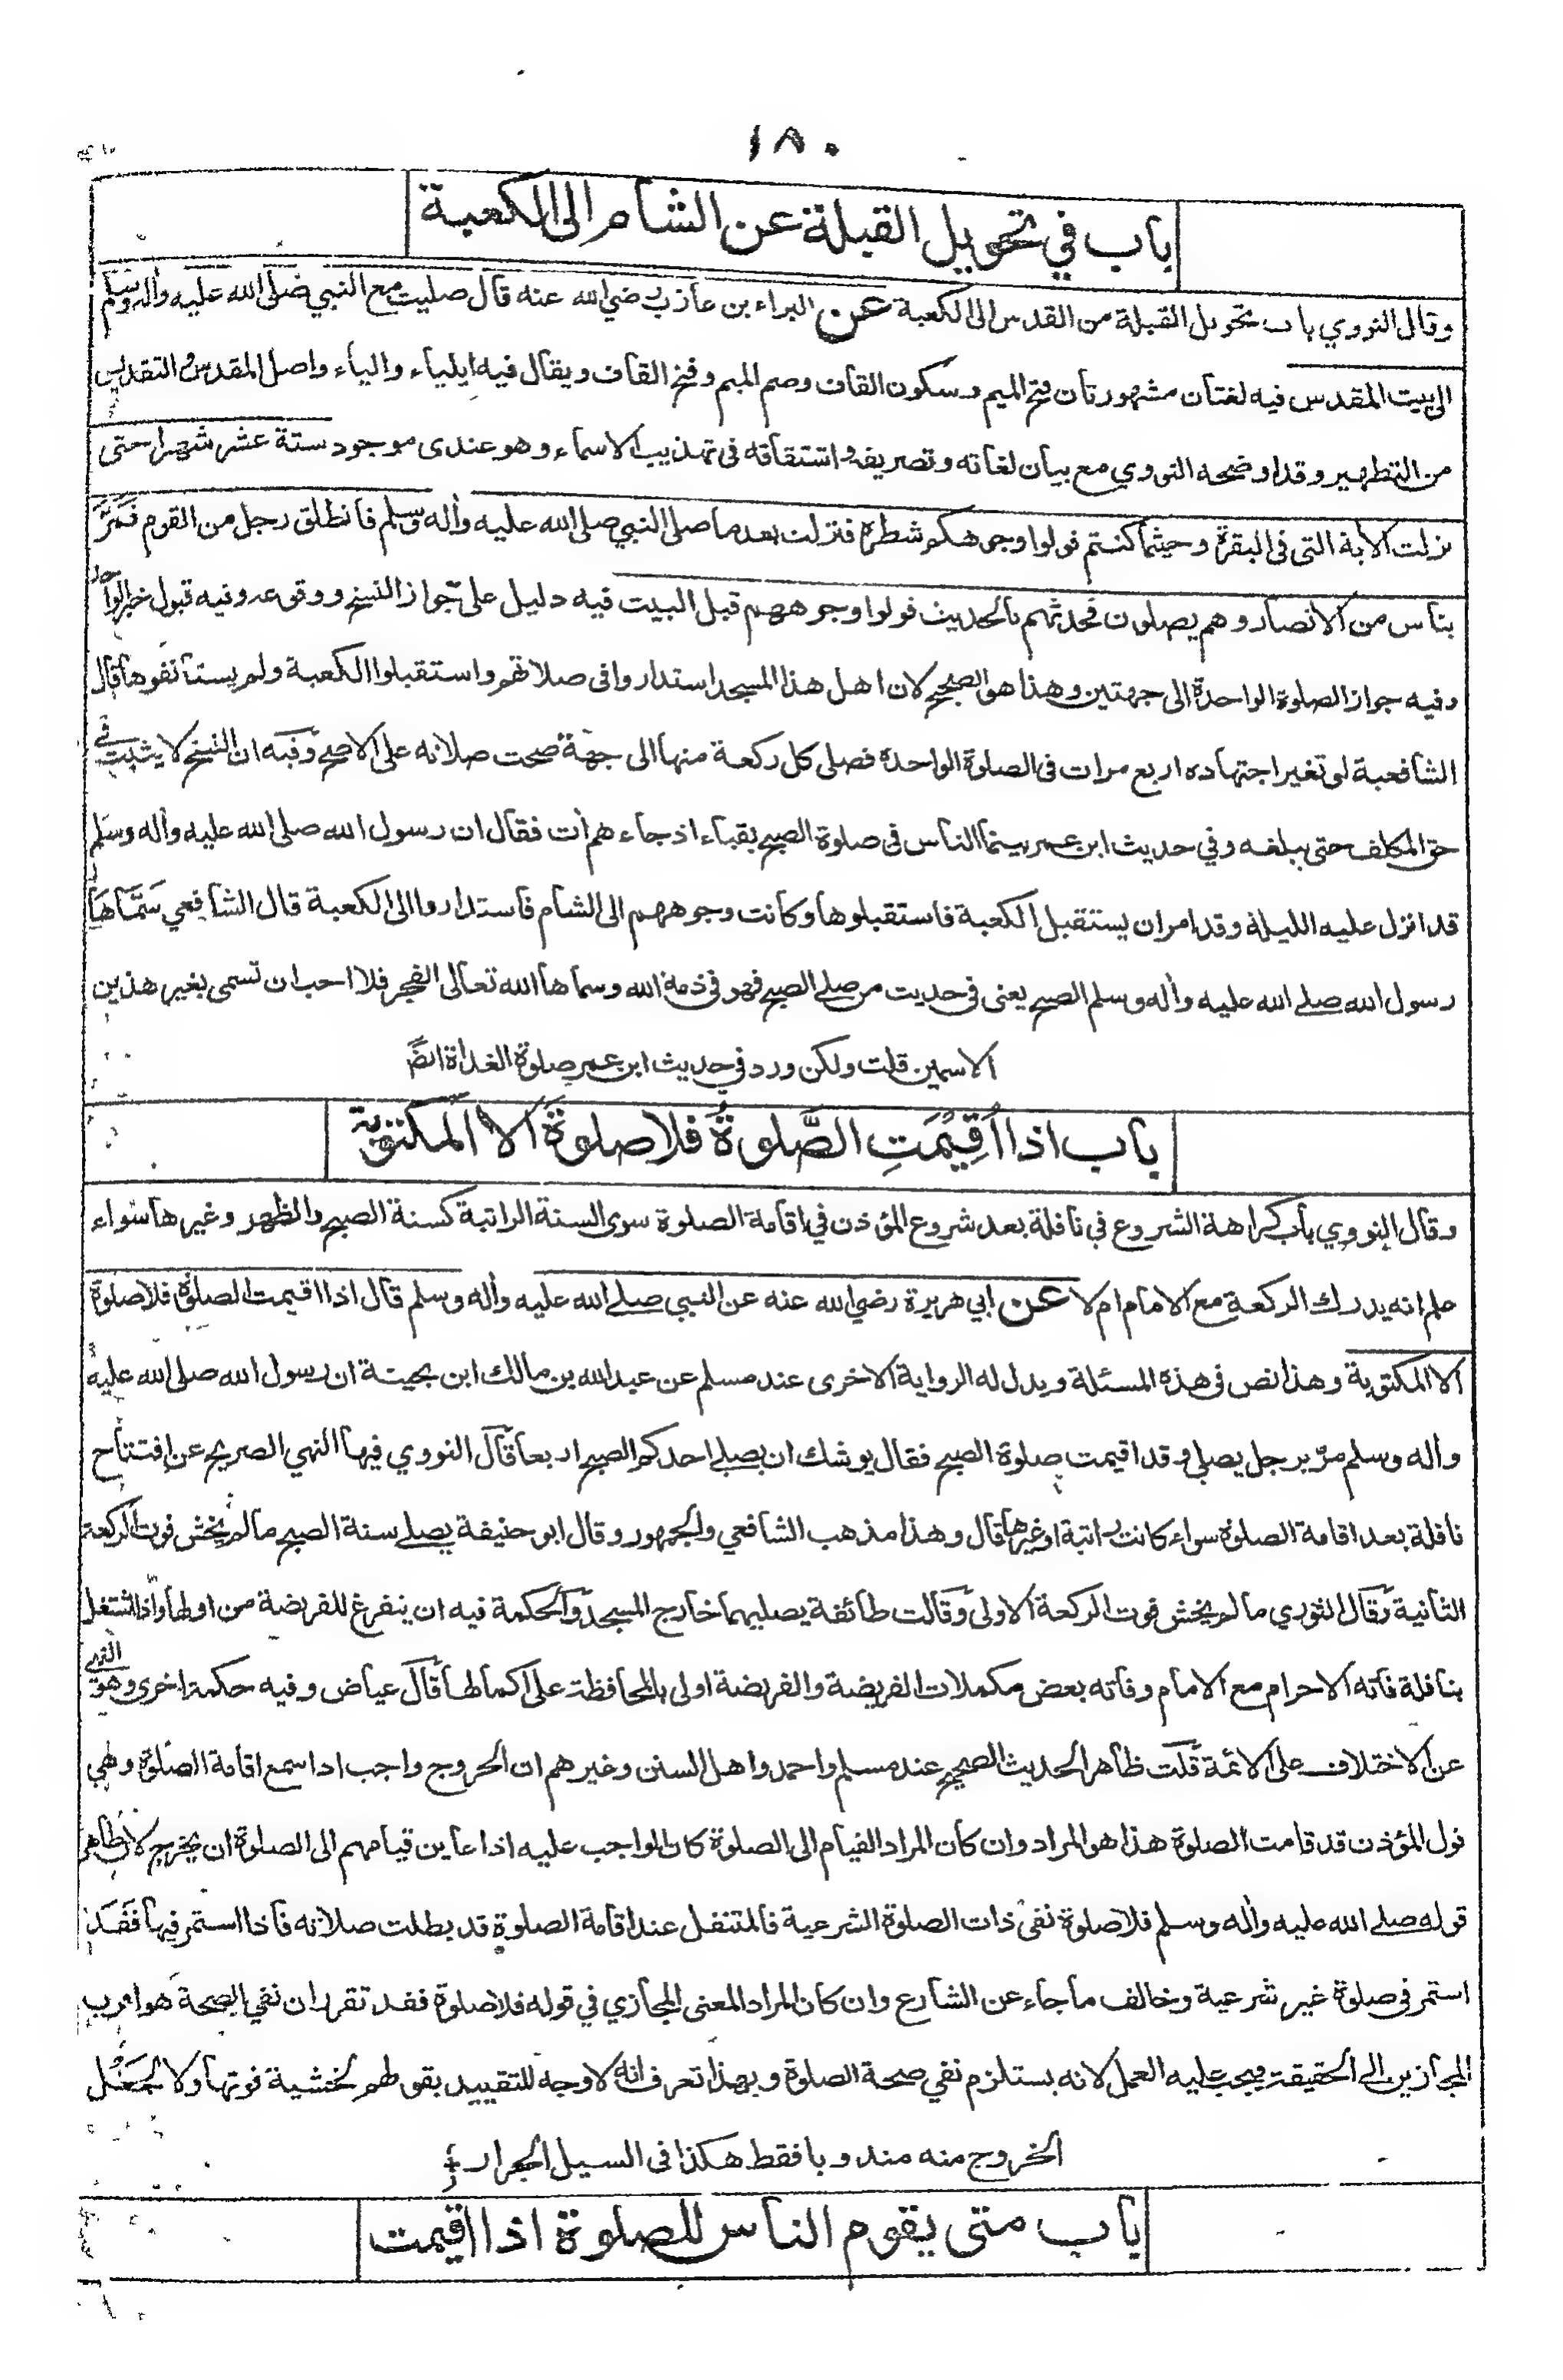 ١٨٠
باب في تحويل القبلة عن الشام الى الكعبة
وقال النووي باب تحويل القبلة من القدس الى الكعبة عن البراء بن عازب رضي الله عنه قال صليت مع النبي صلى الله عليه وأله وسلم
الى بيت المقدس فيه لغتان مشهورتان فتح الميم وسكون القاف وضم الميم وفتح القاف ويقال فيه ايلياء والياء واصل المقدس والتقديس
من التطهير وقد اوضحه النووي مع بيان لغاته وتصريفه واشتقاقه فى تهذيب الاسماء وهو عندى موجود ستة عشر شهرا حتى
نزلت الأية التى فى البقرة وحيثما كنتم فولوا وجوهكم شطره فنزلت بعد ما صلى النبي صلى الله عليه وأله وسلم فانطلق رجل من القوم فمَرَّ
بناس من الانصار وهم يصلون فحدثهم بالحديث فولوا وجوههم قبل البيت فيه دليل على جواز النسخ ووقوعه وفيه قبول خبر الواحد
وفيه جواز الصلوة الواحدة الى جهتين وهذا هو الصحيح لان اهل هذا المسجد استداروا فى صلاتهم واستقبلوا الكعبة ولم يستأنفوها قال
الشافعية لو تغير اجتهاده اربع مرات فى الصلوة الواحدة فصلى كل ركعة منها الى جهة صحت صلاته على الاصح وفيه ان النسخ لا يثبت في
حق المكلف حتى يبلغه وفي حديث ابن عمر بينما الناس فى صلوة الصبح بقباء اذ جاءهم أت فقال ان رسول الله صلى الله عليه وأله وسلم
قد انزل عليه الليلة وقد امر ان يستقبل الكعبة فاستقبلوها وكانت وجوههم الى الشام فاستداروا الى الكعبة قال الشافعي سَمَّاهَا
رسول الله صلى الله عليه وأله وسلم الصبح يعنى فى حديث من صلى الصبح فهو فى ذمة الله وسماها الله تعالى الفجر فلا احب ان تسمى بغير هذين
الاسمين قلت ولكن ورد في حديث ابن عمر صلوة الغداة ايضًا
باب اذا اُقِيْمَتِ الصَّلوةُ فلا صلوةَ الا المكتوبة
وقال النووي باب كراهة الشروع في نافلة بعد شروع المؤذن في اقامة الصلوة سوى السنة الراتبة كسنة الصبح والظهر وغيرها سواء
علم انه يدرك الركعة مع الامام ام لا عن ابي هريرة رضي الله عنه عن النبي صلى الله عليه وأله وسلم قال اذا اقيمت الصلوة فلا صلوة
الا المكتوبة وهذا نص فى هذه المسئلة ويدل له الرواية الاخرى عند مسلم عن عبدالله بن مالك ابن بحينة ان رسول الله صلى الله عليه
وأله وسلم مرّ برجل يصلي وقد اقيمت صلوة الصبح فقال يوشك ان يصلى احدكم الصبح اربعا قال النووي فيها النهي الصريح عن افتتاح
نافلة بعد اقامة الصلوة سواء كانت راتبة او غيرها قال وهذا مذهب الشافعي والجمهور وقال ابو حنيفة يصلى سنة الصبح ما لم يخش فوت الركعة
الثانية وقال الثوري ما لم يخش فوت الركعة الاولى وقالت طائفة يصليهما خارج المسجد والحكمة فيه ان يتفرغ للفريضة من اولها واذا اشتغل
بنافلة فاته الاحرام مع الامام وفاته بعض مكملات الفريضة والفريضة اولى بالمحافظة على اكمالها قال عياض وفيه حكمة اخرى وهو النهي
عن الاختلاف على الائمة قلت ظاهر الحديث الصحيح عند مسلم واحمد واهل السنن وغيرهم ان الخروج واجب اذا سمع اقامة الصلوة وهي
قول المؤذن قد قامت الصلوة هذا هو المراد وان كان المراد القيام الى الصلوة كان الواجب عليه اذا عاين قيامهم الى الصلوة ان يخرج لان ظاهر
قوله صلى الله عليه وأله وسلم فلا صلوة نفي ذات الصلوة الشرعية فالمتنفل عند اقامة الصلوة قد بطلت صلاته فاذا استمر فيها فَقَد
استمر فى صلوة غير شرعية وخالف ما جاء عن الشارع وان كان المراد المعنى المجازي في قوله فلا صلوة فقد تقرر ان نفي الصحة هو اقرب
المجازين الى الحقيقة فيجب عليه العمل لانه يستلزم نفي صحة الصلوة وبهذا تعرف انه لا وجه للتقييد بقولهم لخشية فوتها ولا لجَعْل
الخروج منه مندوبا فقط هكذا فى السيل الجرار
باب متى يقوم الناس للصلوة اذا اقيمت